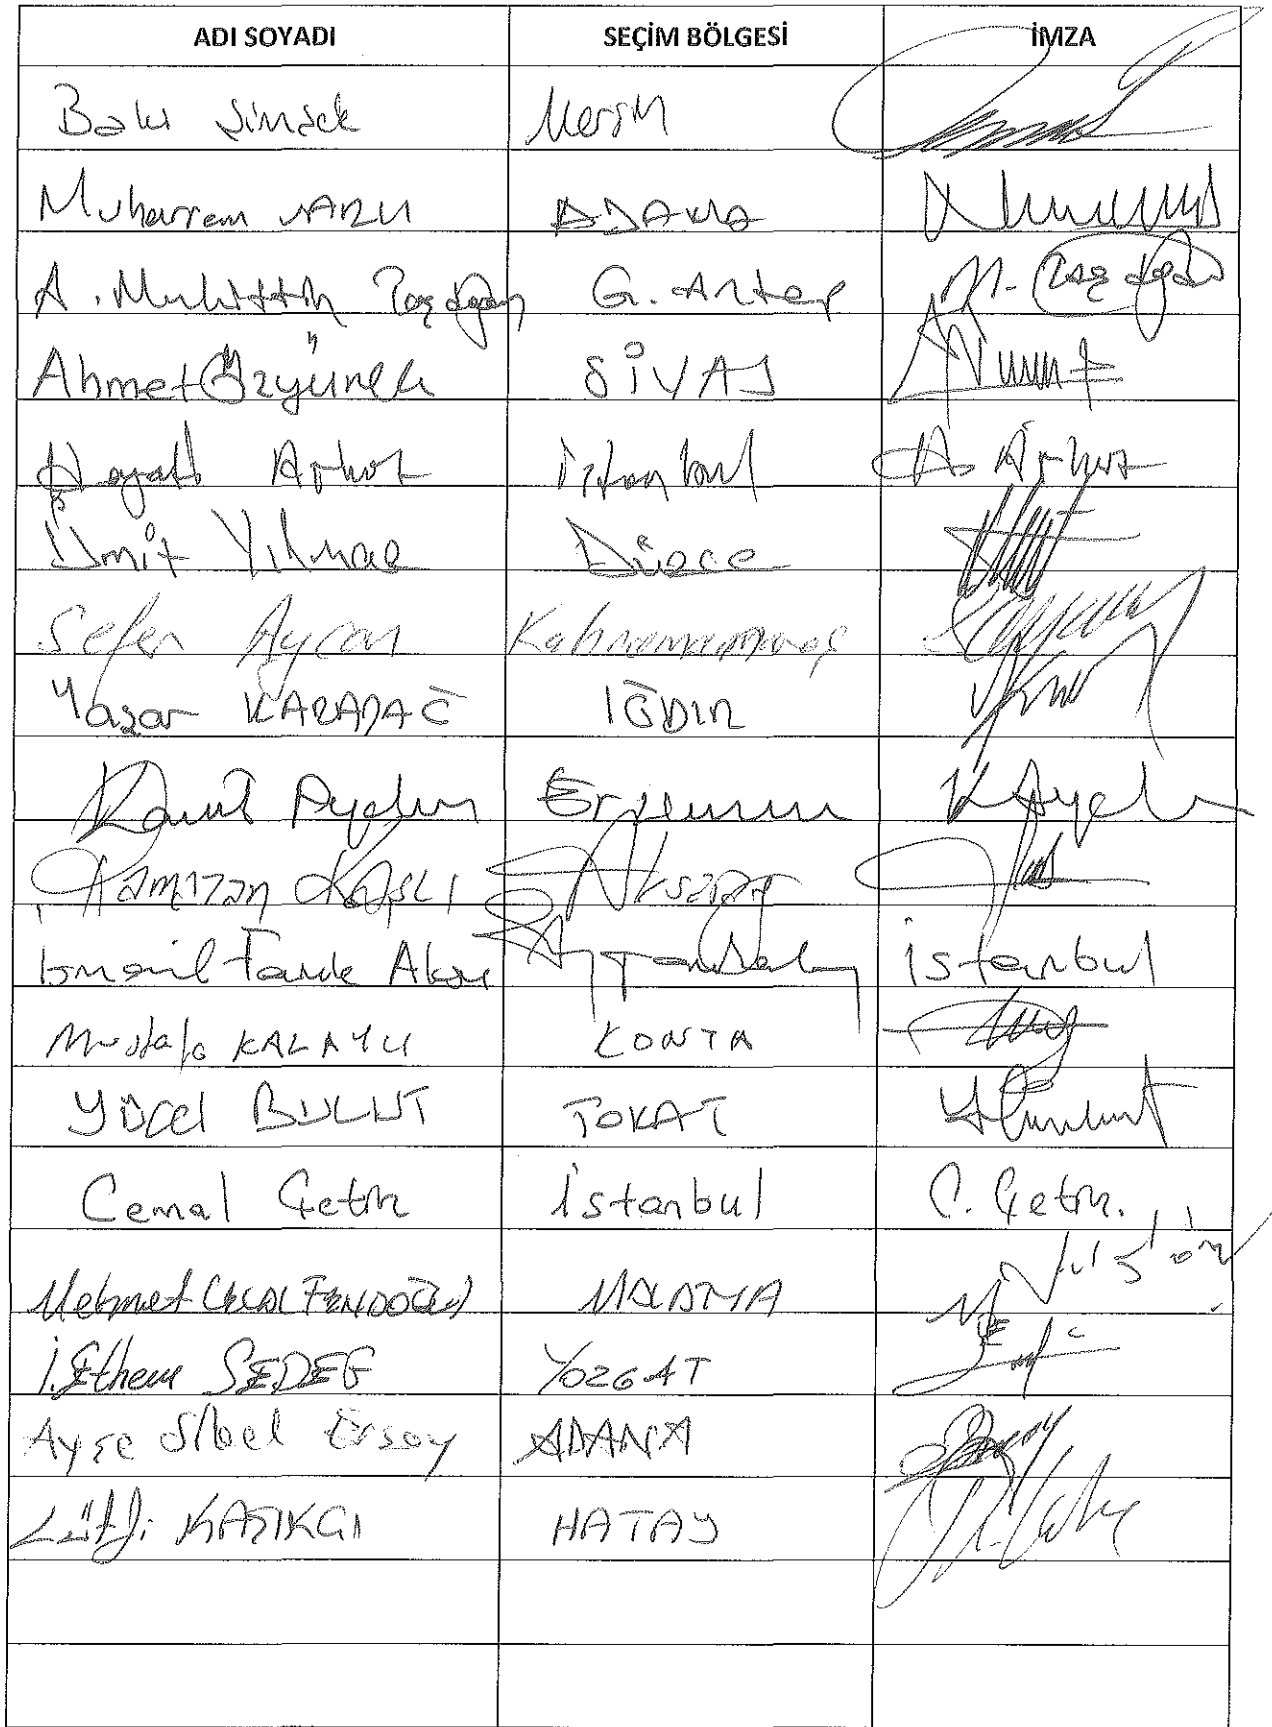 ADI SOYADI SEÇİM BÖLGESİ İMZA
Baki Şimşek Mersin
Muharrem VARLI ADANA
A. Muhittin Taşdoğan G. Antep M. Taşdoğan
Ahmet Özyürek SİVAS
Hayati Arkaz İstanbul H Arkaz
Ümit Yılmaz Düzce
Sefer Aycan Kahramanmaraş
Yaşar KARADAĞ IĞDIR
Kamil Aydın Erzurum K Aydın
Ramazan Kaşlı Aksaray
İsmail Faruk Aksu İstanbul
Mustafa KALAYCI KONYA
YÜCEL BULUT TOKAT
Cemal Çetin İstanbul C. Çetin.
Mehmet Celal FENDOĞLU MALATYA
İ. Ethem SEDEF YOZGAT
Ayşe Sibel Ersoy ADANA
Lütfi KAŞIKÇI HATAY